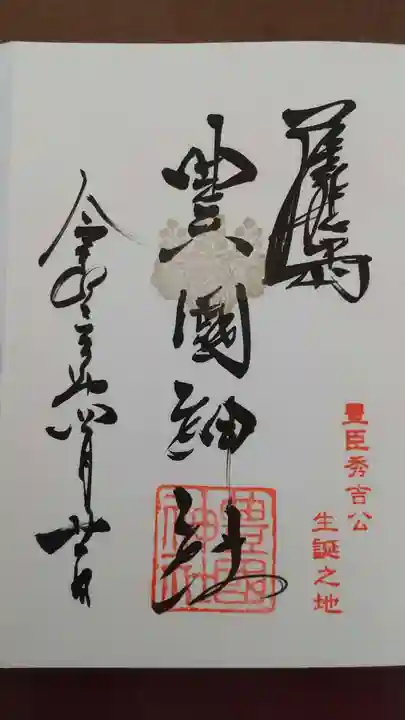 豊臣秀吉公
生誕之地
豊國神社
豊國神社
令和 年 月 日